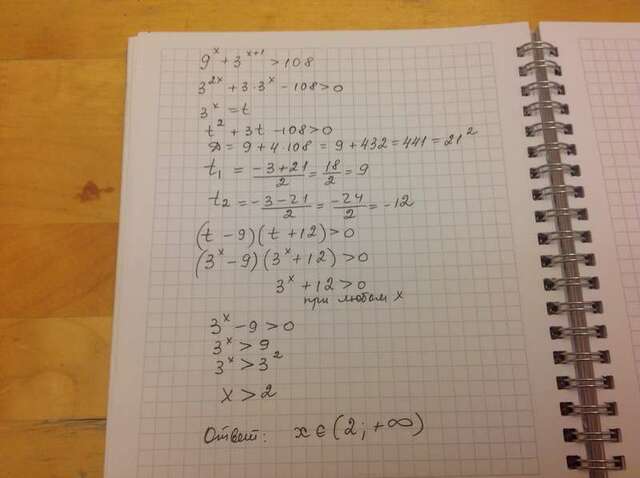 9^x + 3^{x+1} > 108
3^{2x} + 3·3^x - 108 > 0
3^x = t
t^2 + 3t - 108 > 0
D = 9 + 4·108 = 9 + 432 = 441 = 21^2
t_1 = \frac{-3+21}{2} = \frac{18}{2} = 9
t_2 = \frac{-3-21}{2} = \frac{-24}{2} = -12
(t - 9)(t + 12) > 0
(3^x - 9)(3^x + 12) > 0
3^x + 12 > 0
при любом x
3^x - 9 > 0
3^x > 9
3^x > 3^2
x > 2
Ответ: x ∈ (2; +∞)